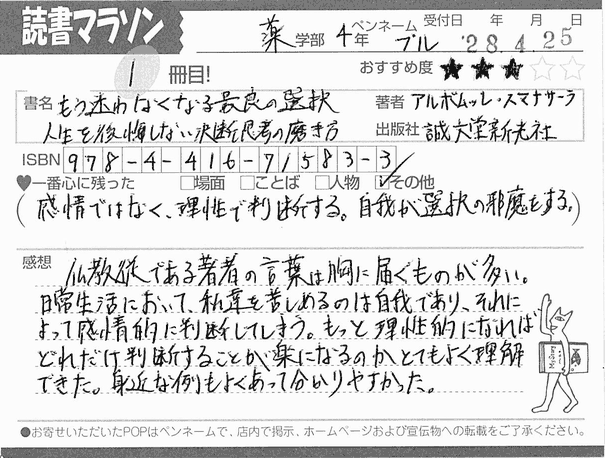 読書マラソン
薬 学部 4 年 ペンネーム ブル 受付日 年 月 日 '28.4.25
1 冊目! おすすめ度 ★★★☆☆
書名 もう迷わなくなる最良の選択 著者 アルボムッレ・スマナサーラ
人生を後悔しない決断思考の磨き方 出版社 誠文堂新光社
ISBN 978-4-416-71583-3
♥一番心に残った □場面 □ことば □人物 ☑その他
(感情ではなく、理性で判断する。自我が選択の邪魔をする。)
感想 仏教徒である著者の言葉は胸に届くものが多い。
日常生活において、私達を苦しめるのは自我であり、それに
よって感情的に判断してしまう。もっと理性的になれば
どれだけ判断することが楽になるのか、とてもよく理解
できた。身近な例もよくあって分かりやすかった。
●お寄せいただいたPOPはペンネームで、店内で掲示、ホームページおよび宣伝物への転載をご了承ください。